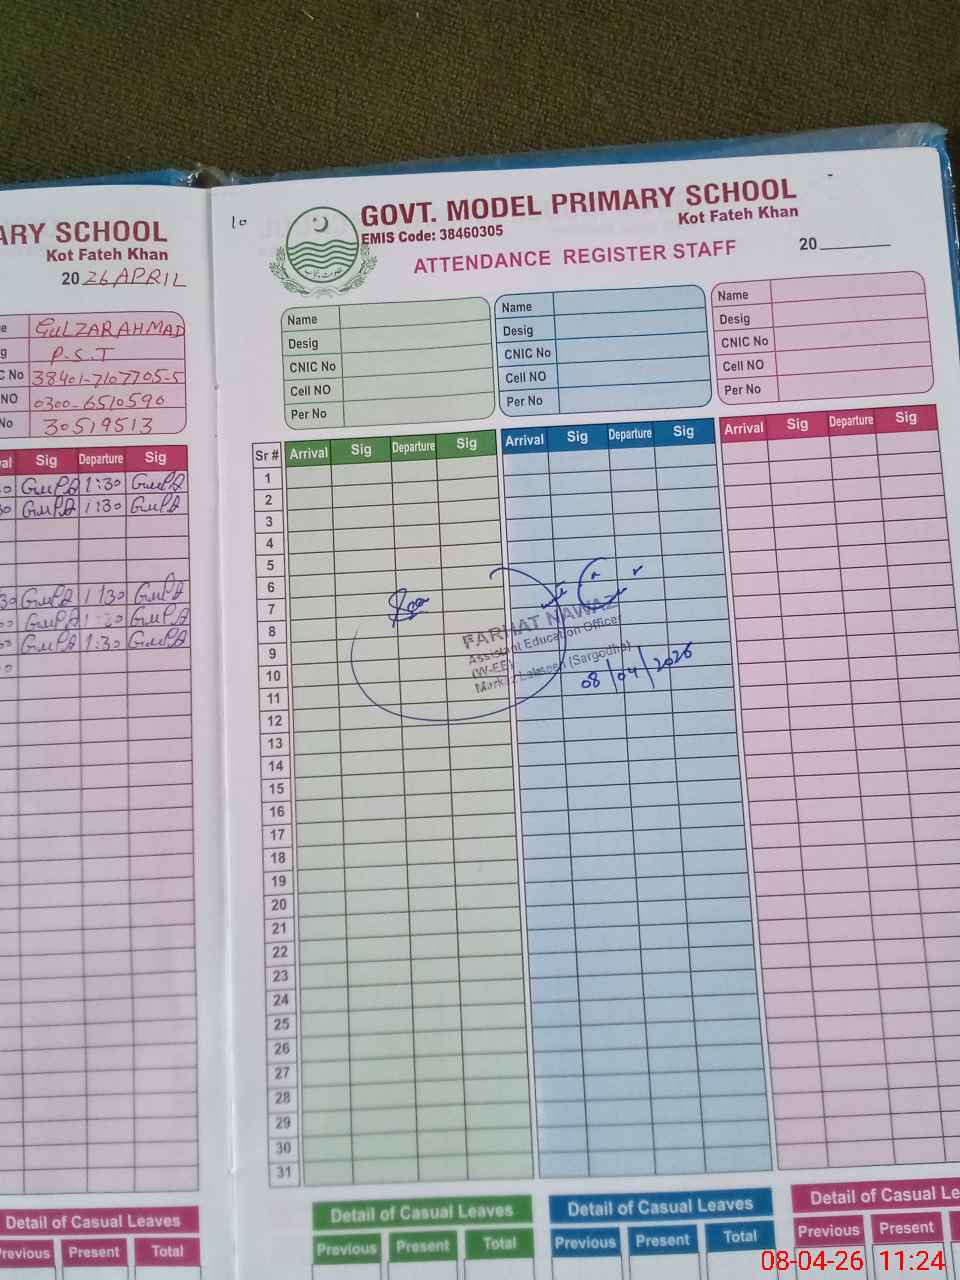 ARY SCHOOL
Kot Fateh Khan
2026 APRIL
GULZAR AHMAD
P.S.T
C No 38401-7107705-5
NO 0300-6510590
No 30519513
Sig Departure Sig
1:30
1:30
1:30
1:30
1:30
Detail of Casual Leaves
Previous Present Total
10
GOVT. MODEL PRIMARY SCHOOL
Kot Fateh Khan
EMIS Code: 38460305
ATTENDANCE REGISTER STAFF
20
Name
Desig
CNIC No
Cell NO
Per No
Name
Desig
CNIC No
Cell NO
Per No
Name
Desig
CNIC No
Cell NO
Per No
Sr # Arrival Sig Departure Sig Arrival Sig Departure Sig Arrival Sig Departure Sig
1
2
3
4
5
6
7
8
9
10
11
12
13
14
15
16
17
18
19
20
21
22
23
24
25
26
27
28
29
30
31
FARHAT NAWAZ
Assistant Education Officer
(W-EE)
(Sargodha)
08/04/2026
Detail of Casual Leaves
Previous Present Total
Detail of Casual Leaves
Previous Present Total
Detail of Casual Le
Previous Present
08-04-26 11:24